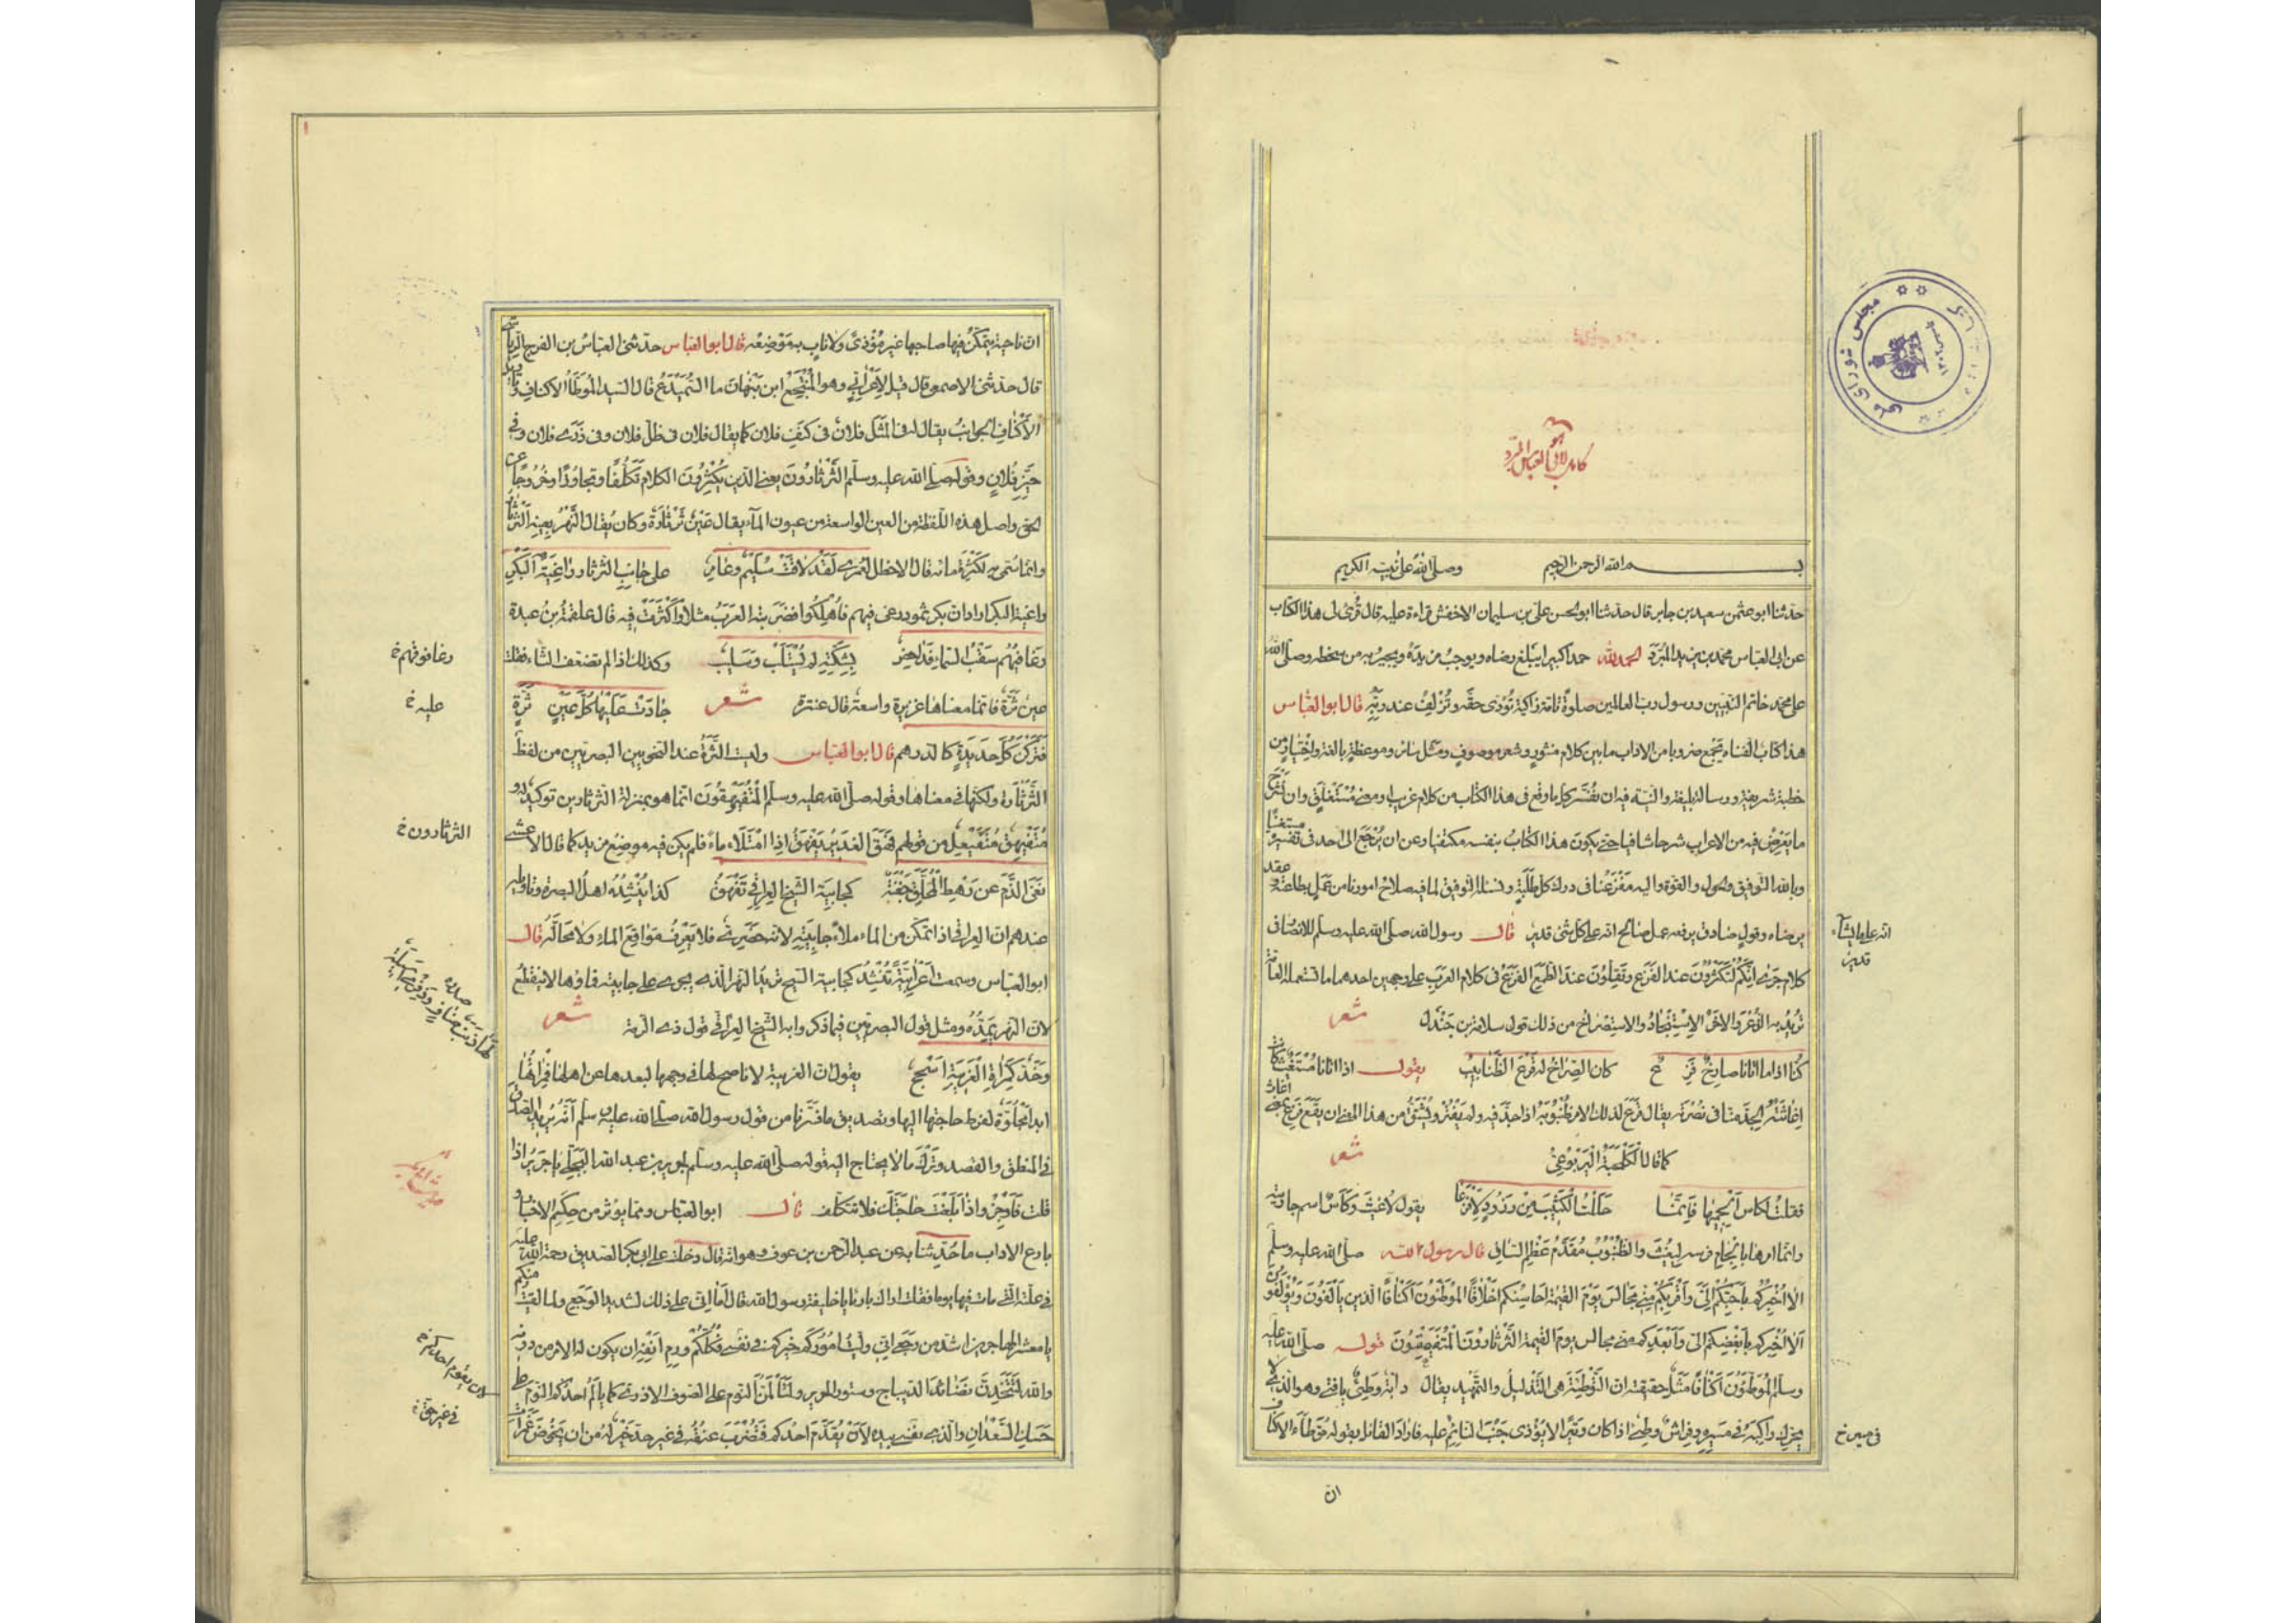 هو
كامل لابى العباس المبرد
بسم الله الرحمن الرحيم وصلى الله على نبيه الكريم
حدثنا ابو عثمن سعيد بن جابر قال حدثنا ابو الحسن على بن سليمان الاخفش قراءة عليه قال قرئ لى هذا الكتاب
عن ابى العباس محمد بن يزيد المبرد الحمد لله حمدا كبيرا يبلغ رضاه ويوجب مزيده ويجير من سخطه وصلى الله
على محمد خاتم النبيين ورسول رب العالمين صلوة تامة زاكية تؤدى حقه وتزلف عند ربه قال ابو العباس
هذا كتاب الفناه يجمع ضروبا من الاداب ما بين كلام منثور وشعر موصوف ومثل سائر وموعظة بالغة واختيار من
خطبة شريفة ورسالة بليغة والنية فيه ان نفسر كل ما وقع فى هذا الكتاب من كلام غريب او معنى مستغلق وان نشرح
ما يعرض فيه من الاعراب شرحا شافيا حتى يكون هذا الكتاب بنفسه مكتفيا وعن ان يرجع الى احد فى تفسيره مستغنيا
وبالله التوفيق والحول والقوة واليه مفزعنا فى درك كل طلبة ونسئله التوفيق لما فيه صلاح امورنا من عمل بطاعته وعقد
برضاه وقول صادق يرفعه عمل صالح انه على كل شئ قدير قال رسول الله صلى الله عليه وسلم للانصار فى
انه على ما يشاء
قدير
كلام جرى انكم لتكثرون عند الفزع وتقلون عند الطمع الفزع فى كلام العرب على وجهين احدهما ما تستعمله العامة
تريد به الذعر والاخر الاستنجاد والاستصراخ من ذلك قول سلامة بن جندل شعر
كنا اذا ما اتانا صارخ فزع كان الصراخ له قرع الظنابيب يقول اذا اتانا مستغيث كانت
اغاثته الجد منا فى نصرته يقال قرع لذلك الامر ظنبوبه اذا جد فيه ولم يفتر ويشتق من هذا المعنى ان يقع فزع بمعنى اغاث
كما قال الكلحبة اليربوعى شعر
فقلت لكاس الجميها فانما حللت الكثيب من زرود لافزعا يقول لاغيث وكاس اسم جارية
وانما امرها بالجام فرسه ليغيث والظنبوب مقدم عظم الساق قال رسول الله صلى الله عليه وسلم
الا اخبركم باحبكم الى واقربكم منى مجالس يوم القيمة احاسنكم اخلاقا الموطئون اكنافا الذين يألفون ويؤلفون
الا اخبركم بابغضكم الى وابعدكم منى مجالس يوم القيمة الثرثارون المتفيهقون قوله صلى الله عليه
وسلم الموطئون اكنافا مثل وحقيقته ان التوطئة هى التذليل والتمهيد يقال دابة وطئ يا فتى وهو الذى لا
يحرك راكبه فى مسيره وفراش وطئ اذا كان وثيرا لا يؤذى جنب النائم عليه فاراد القائل بقوله موطأ الاكناف
فى سيره خ
ان
ان ناحيته يتمكن فيها صاحبها غير مؤذى ولا ناب به موضعه قال ابو العباس حدثنى العباس بن الفرج الرياشى
قال حدثنى الاصمعى قال قيل لاعرابى وهو المنتجع ابن نبهان ما السميدع قال السيد الموطأ الاكناف وتأويل
الاكناف الجوانب يقال فى المثل فلان فى كنف فلان كما يقال فلان فى ظل فلان وفى ذرى فلان وفى
حيز فلان وقوله صلى الله عليه وسلم الثرثارون يعنى الذين يكثرون الكلام تكلفا وتجاوزا وخروجا عن
الحق واصل هذه اللفظة من العين الواسعة من عيون الماء يقال عين ثرثارة وكان يقال لنهر بعينه الثرثار
وانما سمى به لكثرة مائه قال الاخطل لعمرى لقد لاقت سليم وعامر على جانب الثرثار راغية البكر
راغية البكر اراد ان بكر ثمود رغى فيهم فاهلكوا فضربته العرب مثلا واكثرت فيه قال علقمة بن عبدة
رغا فيهم سقب السماء فداحض بشكته لم يستلب وسليب وكذلك اذا لم تضعف الثاء فقلت
رغا فوقهم خ
عين ثرة فانما معناها غزيرة واسعة قال عنترة شعر جادت عليها كل عين ثرة
عليه خ
فتركن كل حديقة كالدرهم قال ابو العباس وليست الثرة عند النحويين البصريين من لفظ
الثرثارة ولكنها فى معناها وقوله صلى الله عليه وسلم المتفيهقون انما هو بمنزلة الثرثارين توكيد له و
الثرثارون خ
متفيهق متفيعل من قولهم فهق الغدير يفهق اذا امتلاء ماء فلم يكن فيه موضع مزيد كما قال الاعشى
نفى الذم عن رهط المحلق جفنة كجابية الشيخ العراقى تفهق كذا ينشده اهل البصرة وتاويله
عندهم ان العراقى اذا تمكن من الماء ملأ جابيته لانه حضرى فلا يعرف مواقع الماء ولا محاله قال
ابو العباس وسمعت اعرابية تنشد كجابية السيح تريد النهر الذى يجرى على جابيته فماؤها لا ينقطع
لان النهر يمده ومثل قول البصريين فيما ذكروا به الشيخ العراقى قول ذى الرمة شعر
وخد كمرآة الغريبة اسجح يقول ان الغريبة لا ناصح لها فى وجهها لبعدها عن اهلها فمرآتها
ابدا مجلوة لفرط حاجتها اليها وتصديق ما فسرنا من قول رسول الله صلى الله عليه وسلم انه يريد الصدق
فى المنطق والقصد وترك ما لا يحتاج اليه قوله صلى الله عليه وسلم لجرير بن عبد الله البجلى يا جرير اذا
قلت فاوجز واذا بلغت حاجتك فلا تتكلف قال ابو العباس ومما يؤثر من حكيم الاخبار و
بارع الاداب ما حدثنا به عن عبد الرحمن بن عوف وهو انه قال دخلت على ابى بكر الصديق رحمة الله عليه
فى علته التى مات فيها يوما فقلت اراك بارئا يا خليفة رسول الله قال اما انى على ذلك لشديد الوجع ولما لقيت منكم
يا معشر المهاجرين اشد من وجعى انى وليت اموركم خيركم فى نفسى فكلكم ورم انفه ان يكون له الامر من دونه
والله لتتخذن نضائد الديباج وستور الحرير ولتألمن النوم على الصوف الاذربى كما يألم احدكم النوم على
حسك السعدان والذى نفسى بيده لان يقدم احدكم فتضرب عنقه فى غير حد خير له من ان يخوض غمرات
لان يقوم احدكم خ
فى غير حق خ